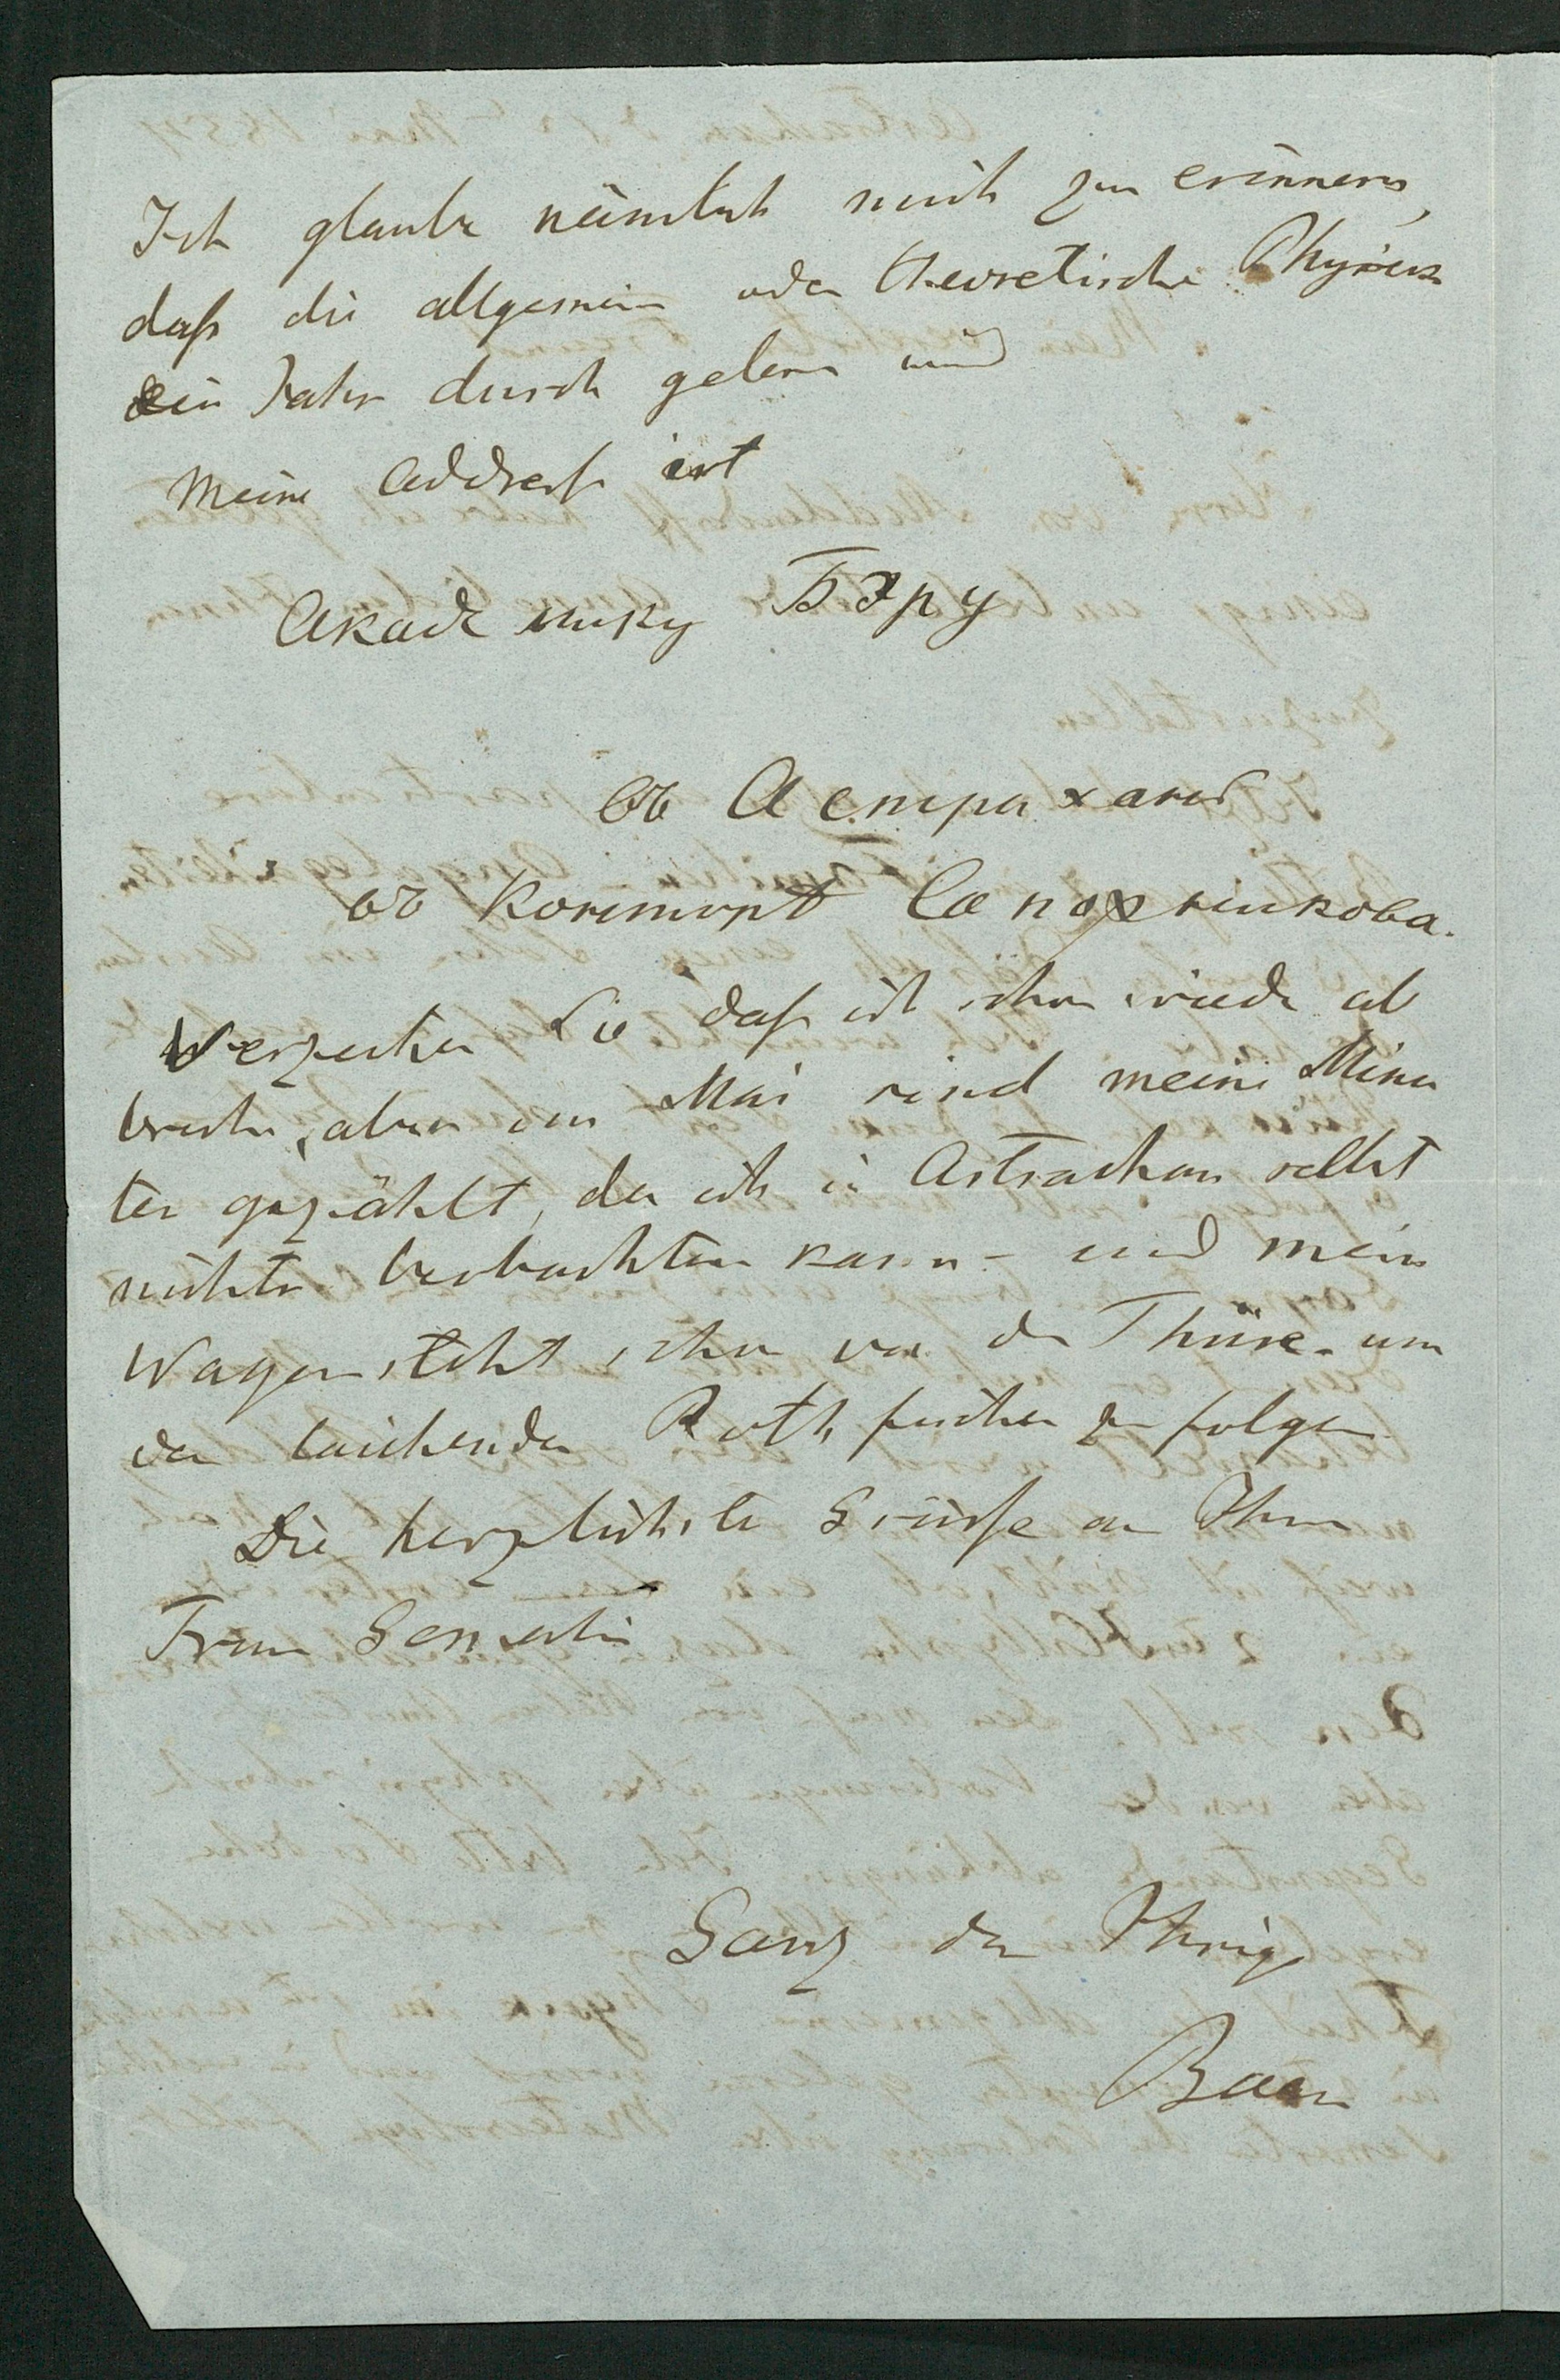 Ich glaube nämlich mich zu erinnern,
daß die allgemeine oder theoretische Physik
ein Jahr durch gelesen wird
Meine Addresse ist
Академику Бэру
въ Астрахань
въ Контору Сапожникова.
Verzeihen Sie daß ich schon wieder ab
breche, aber im Mai sind meine Minu
ten gezählt, da ich in Astrachan selbst
nichts beobachten kann – und mein
Wagen steht schon vor der Thüre um
den laichenden Rothfischen zu folgen
Die herzlichste Grüße an Ihre
Frau Gemahlin
Ganz der Ihrige
Baer